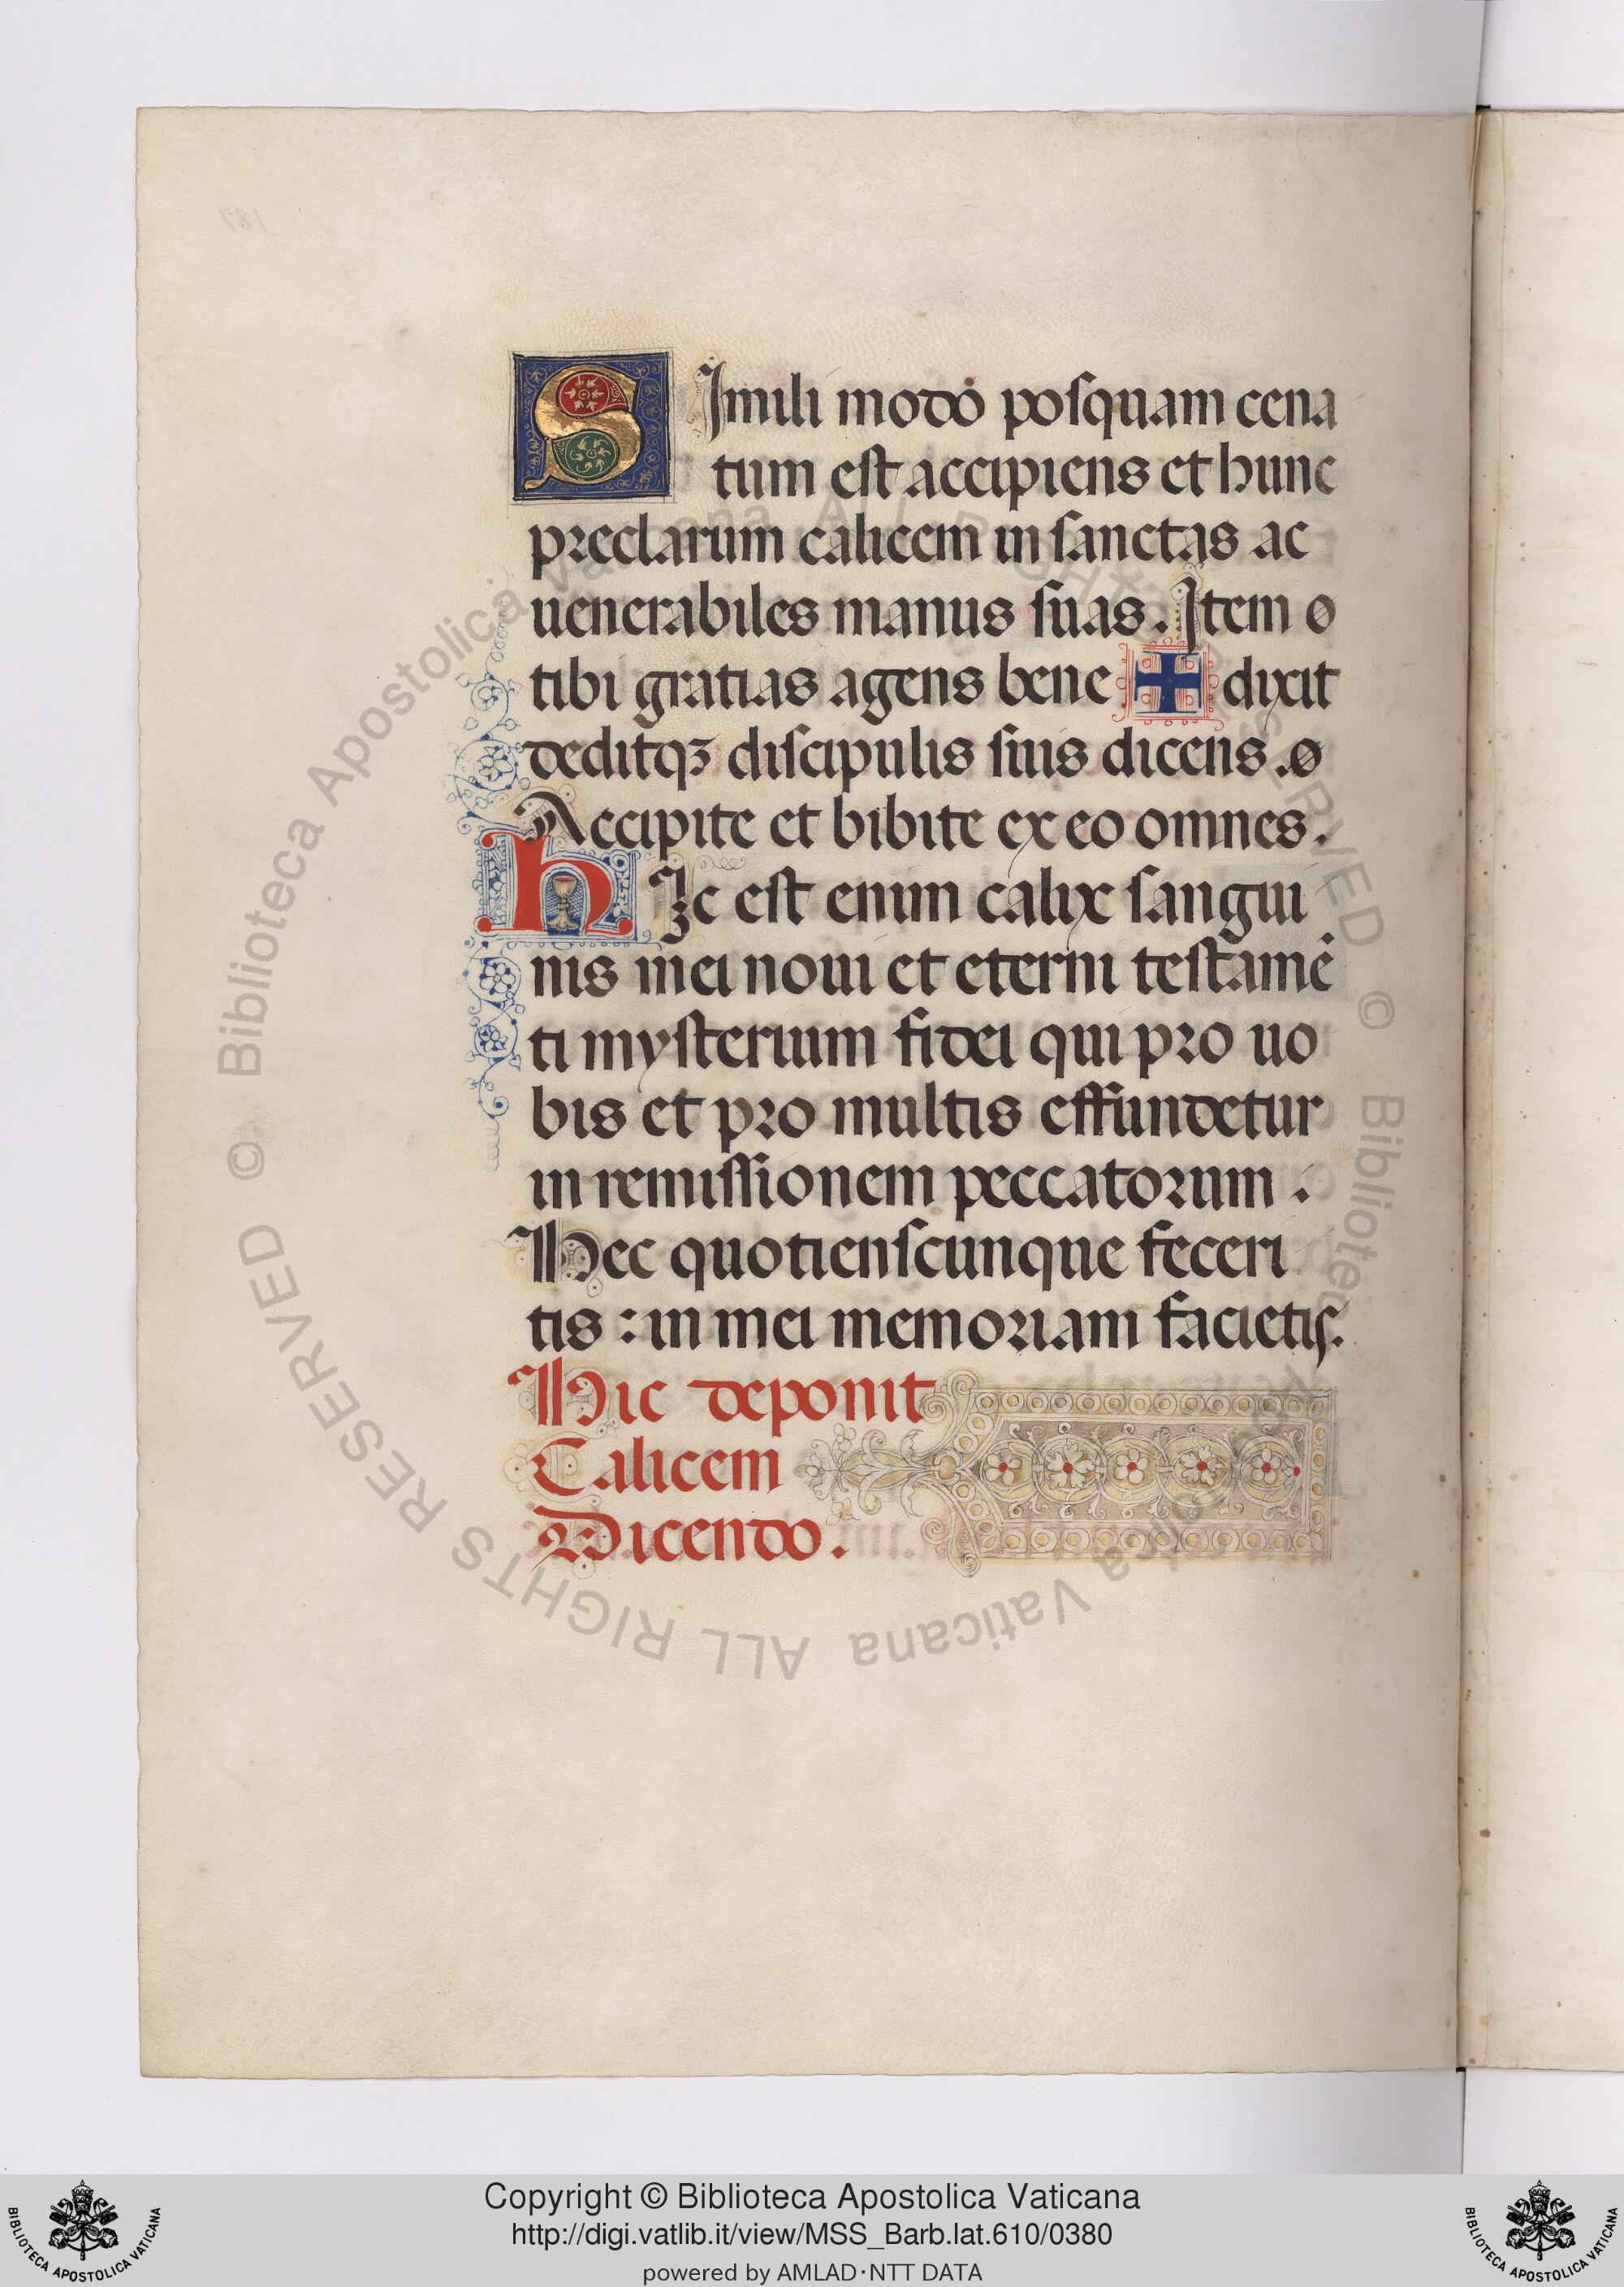 SImili modo posquam cena
tum est accipiens et hunc
preclarum calicem in sanctas ac
uenerabiles manus suas. Item ø
tibi gratias agens bene ✚ dixit
deditqꝫ discipulis suis dicens. ø
Accipite et bibite ex eo omnes.
hIc est enim calix sangui
nis mei noui et eterni testamē
ti mysterium fidei qui pro uo
bis et pro multis effundetur
in remissionem peccatorum.
Hec quotienscunque feceri
tis : in mei memoriam facietis.
Hic deponit
Calicem
Dicendo.
© Biblioteca Apostolica Vaticana ALL RIGHTS RESERVED © Biblioteca Apostolica Vaticana ALL RIGHTS RESERVED
BIBLIOTECA APOSTOLICA VATICANA
Copyright © Biblioteca Apostolica Vaticana
http://digi.vatlib.it/view/MSS_Barb.lat.610/0380
powered by AMLAD·NTT DATA
BIBLIOTECA APOSTOLICA VATICANA